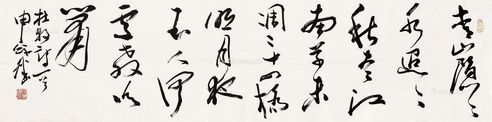 青山隱〻
水迢〻
秋盡江
南草未
凋二十四橋
明月夜
玉人何
處教吹
簫
杜牧詩一首